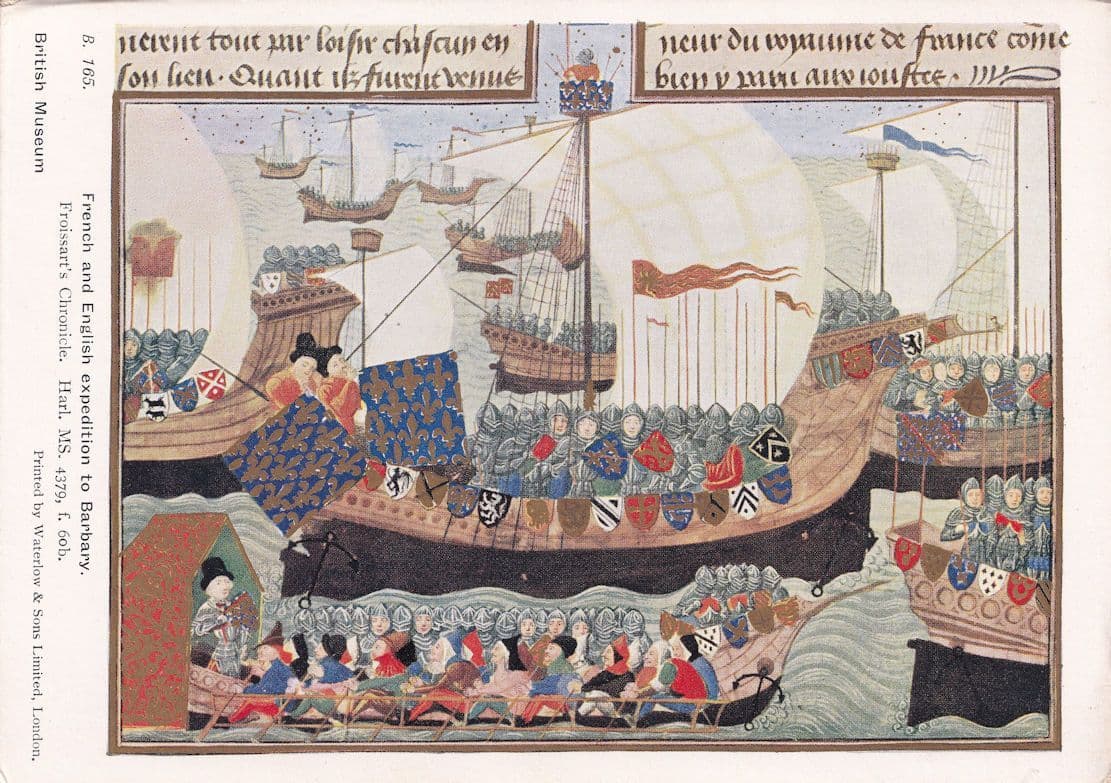 nerent tout par loisir chascun en
son lieu. Quant ilz furent venus
neur du royaume de france come
bien y paru aux ioustes.
B. 165. French and English expedition to Barbary.
Froissart's Chronicle. Harl. MS. 4379, f. 60b.
British Museum Printed by Waterlow & Sons Limited, London.